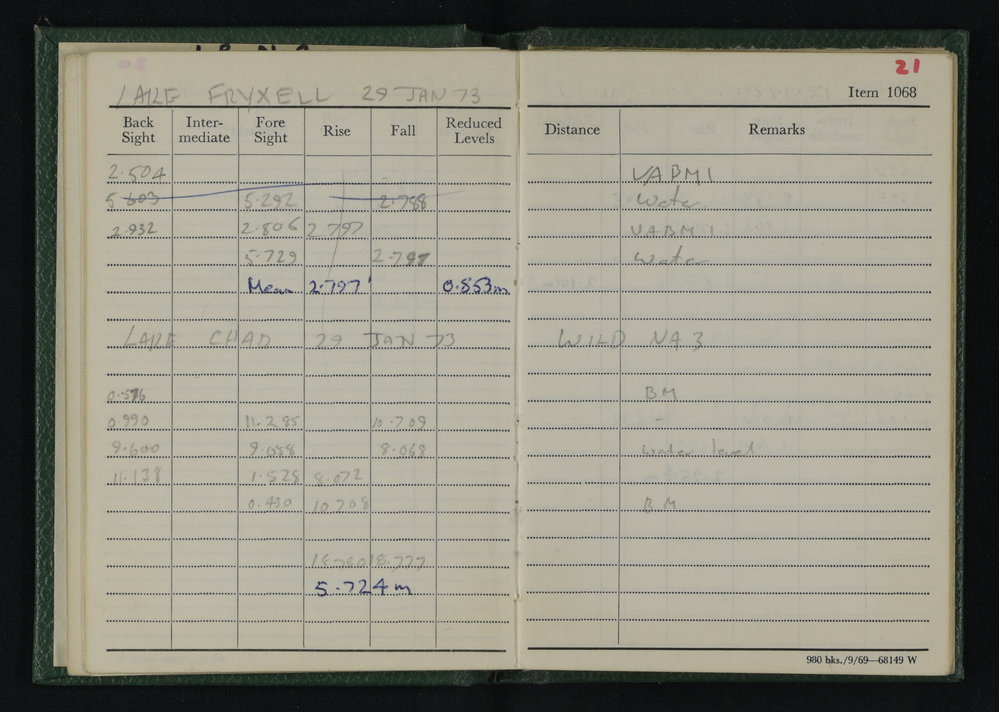 21
LAKE FRYXELL 29 JAN 73
Item 1068
Back Sight Inter-mediate Fore Sight Rise Fall Reduced Levels Distance Remarks
2.504 VABM1
5.603 5.292 2.788 Water
2.932 2.806 2.797 VABM1
5.729 2.797 Water
Mean 2.797' 0.853m
LAKE CHAD 29 JAN 73 WILD NA3
0.576 BM
0.990 11.285 10.709 -
9.600 9.058 8.068 water level
11.138 1.528 8.072
0.430 10.708 BM
18.780 18.777
5.724m
980 bks./9/69—68149 W